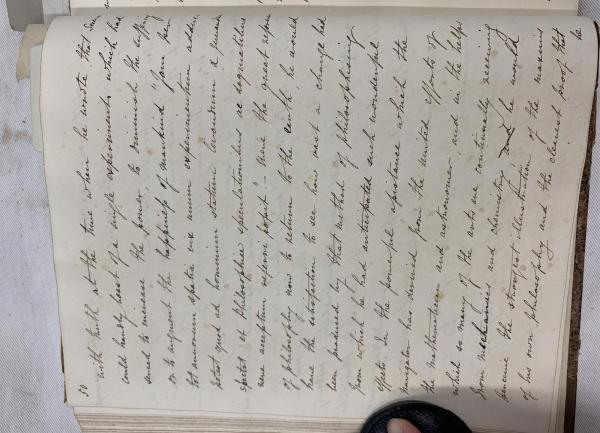 50
with truth at the time when he wrote that
could hardly boast of a single experiment which had
served to increase the power, to diminish the
or to augment the happiness of mankind "jam per
tot annorum spatia vix unum experimentum adduci
potest quod ad hominum statum levandum et
spectet et philosophiæ speculationibus ac dogmatibus
vere acceptum referri possit" - were the great
of philosophy now to return to the earth, he would
have the satisfaction to see how vast a change had
been produced by that method of philosophising
from which he had anticipated such wonderful
effects. In the powerful assistance which the
navigator has derived from the united efforts of
the mathematician and astronomer and in the helps
which so many of the arts are continually receiving
from mechanics and chemistry he would
perceive the strongest illustration of the maxims
of his own philosophy and the clearest proof that
he